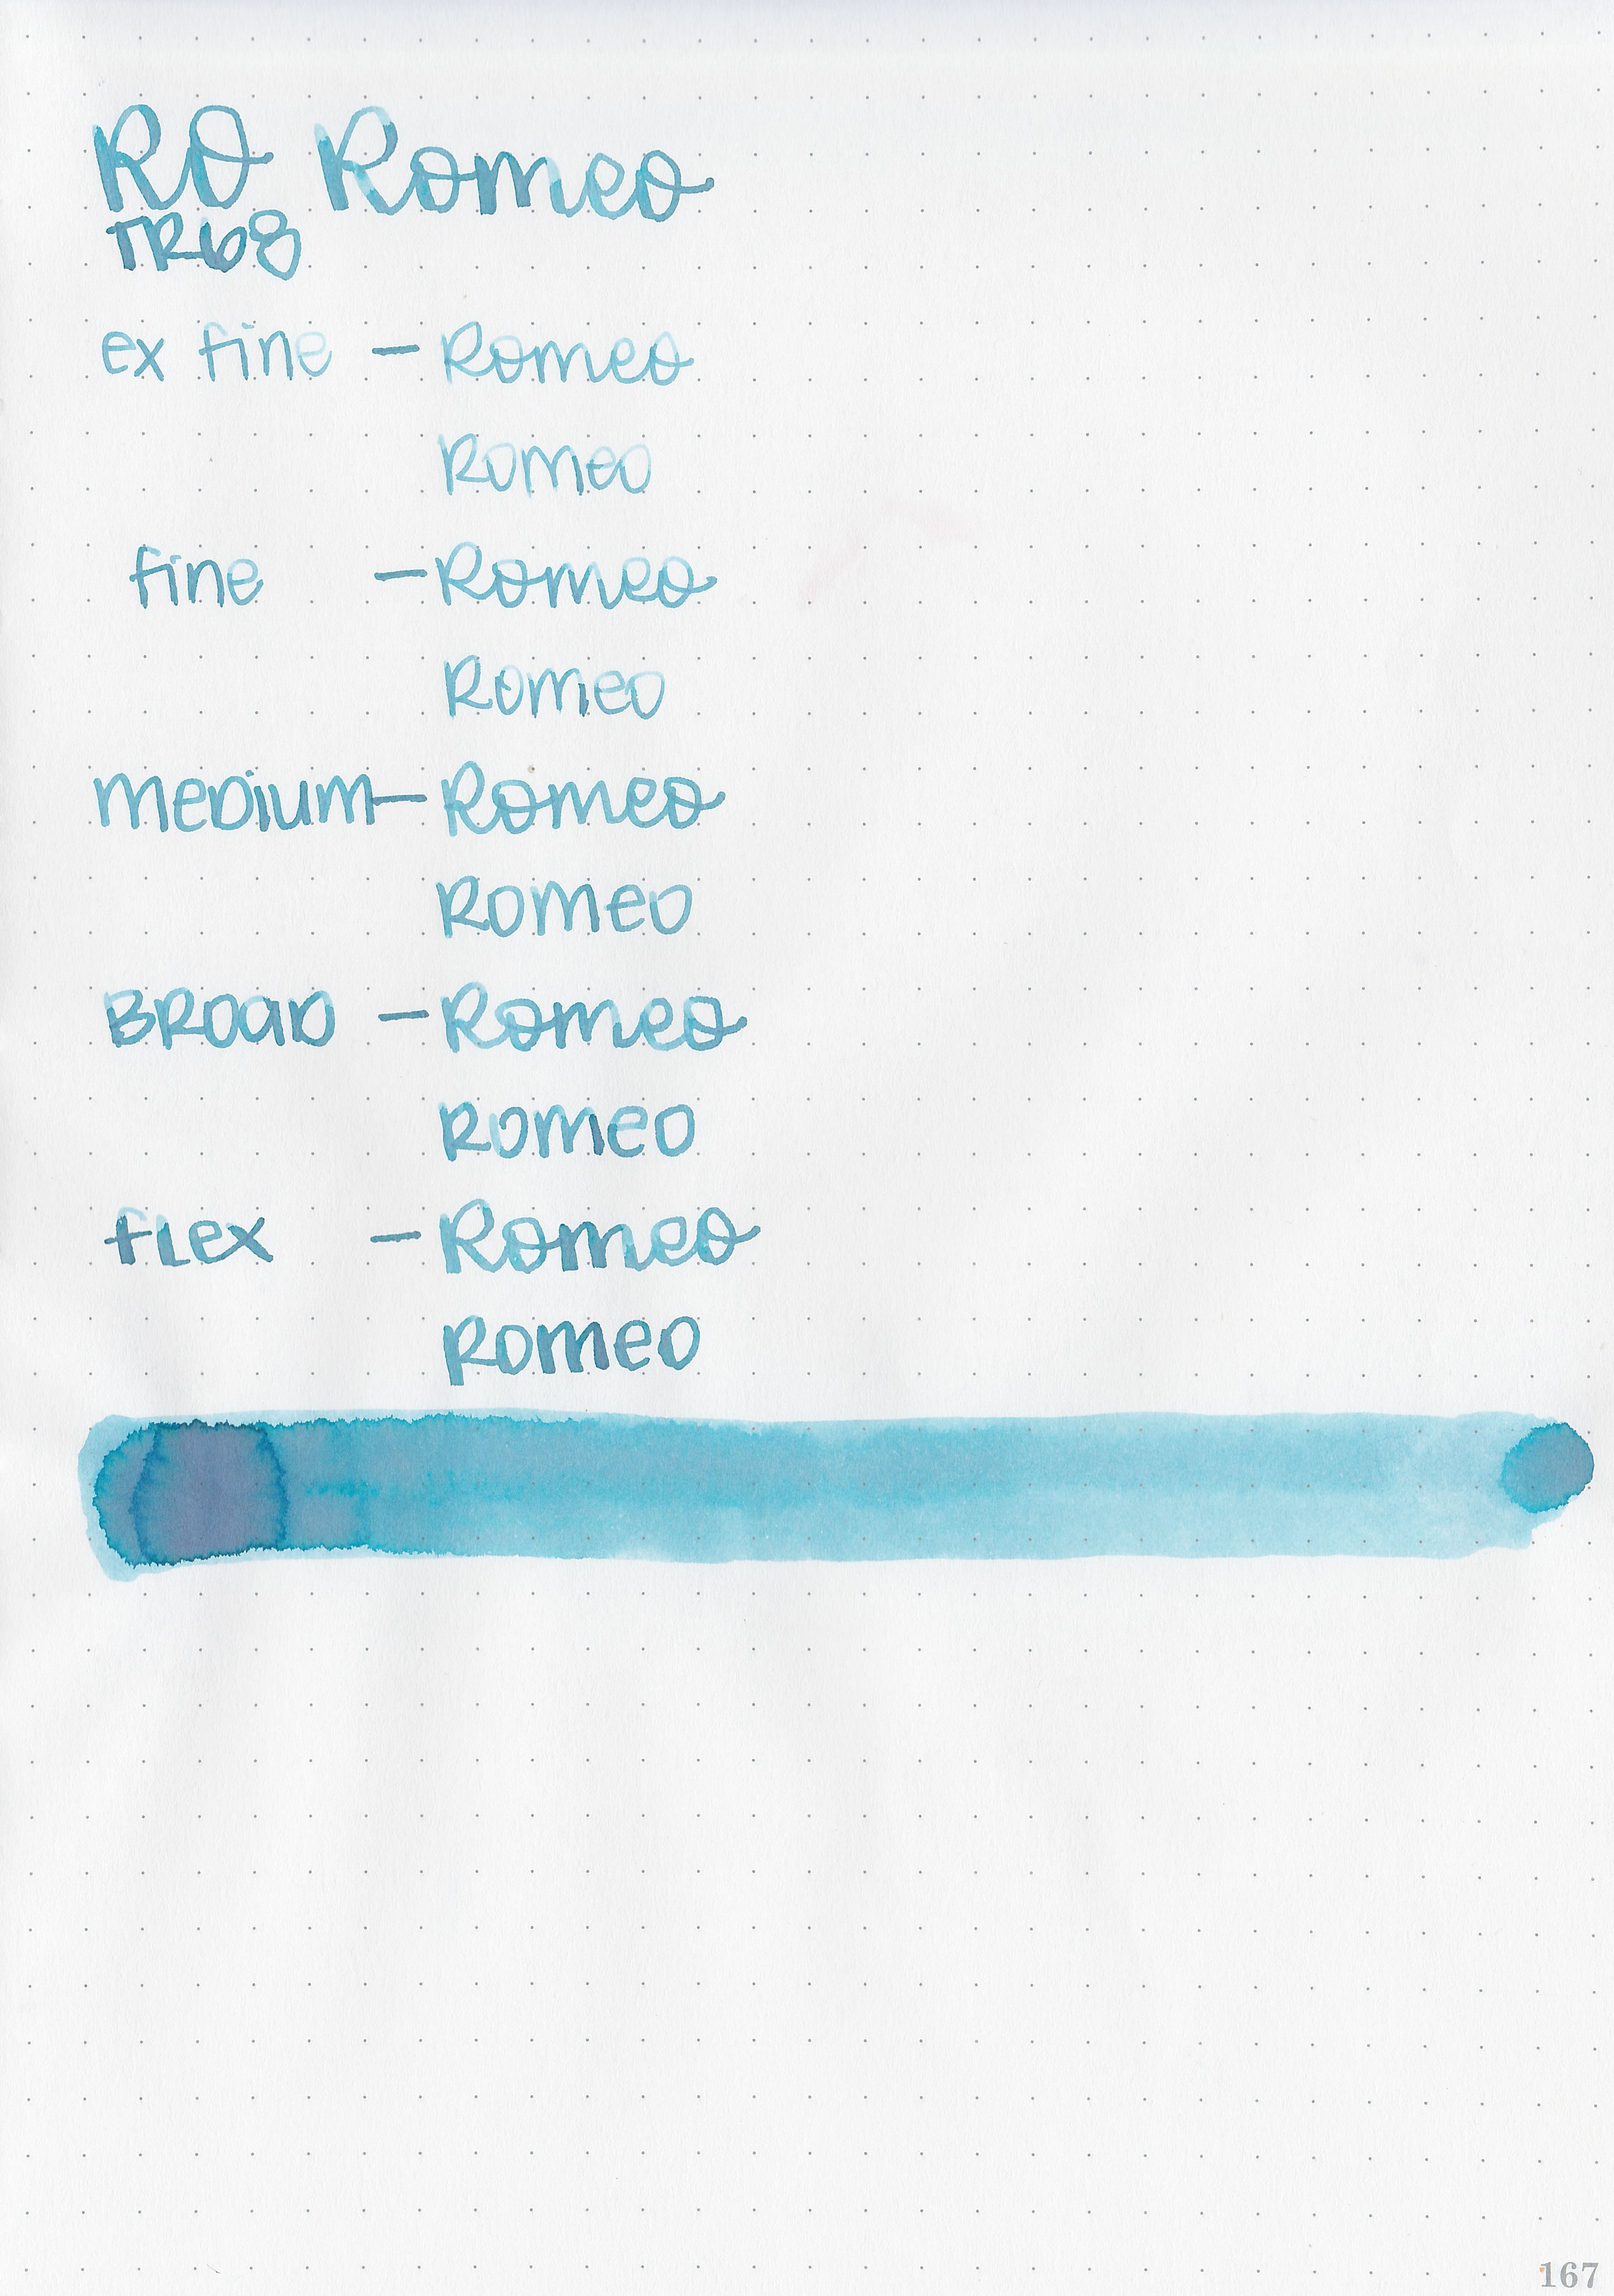 RO Romeo
TR68
ex fine - Romeo
Romeo
fine - Romeo
Romeo
medium - Romeo
Romeo
Broad - Romeo
Romeo
flex - Romeo
Romeo
167